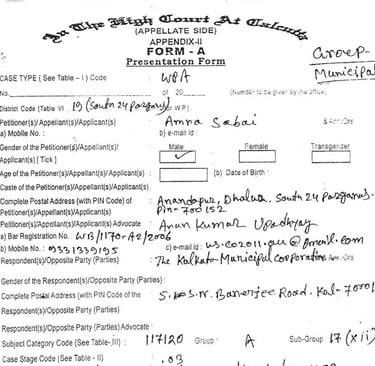 In The High Court At Calcutta
(APPELLATE SIDE)
APPENDIX-II
FORM - A
Presentation Form
Group-
Municipal
CASE TYPE ( See Table - I ) Code : WPA
No. of 20 (Number to be given by the office)
District Code (Table VI 19 (South 24 Parganas) or W P)
Petitioner(s)/Appellant(s)/Applicant(s) : Amna Sabai & Anr./Ors
a) Mobile No. : b) e-mail id :
Gender of the Petitioner(s)/Appellant(s)/ Male Female Transgender
Applicant(s) [ Tick ] ✓
Age of the Petitioner(s)/Appellant(s)/Applicant(s) : (b) Date of Birth :
Caste of the Petitioner(s)/Appellant(s)/Applicant(s) :
Complete Postal Address (with PIN Code) of : Anandapur, Dhalua, South 24 Parganas.
Petitioner(s)/Appellant(s)/Applicant(s) Pin-700152
Petitioner(s)/Appellant(s)/Applicant(s) Advocate : Arun Kumar Upadhyay
a) Bar Registration No. WB/1170-A2/2006
b) Mobile No. : 9331339195 c) e-mail id :
Respondent(s)/Opposite Party (Parties) : The Kolkata Municipal Corporation Anr./Ors
Gender of the Respondent(s)/Opposite Party (Parties) :
Complete Postal Address (with PIN Code of the : S.N. Banerjee Road. Kol-70001
Respondent(s)/Opposite Party (Parties)
Respondent(s)/Opposite Party (Parties) Advocate :
Subject Category Code (See Table-III) : 117120 Group : A Sub-Group 17 (xii)
Case Stage Code (See Table - II) : 03